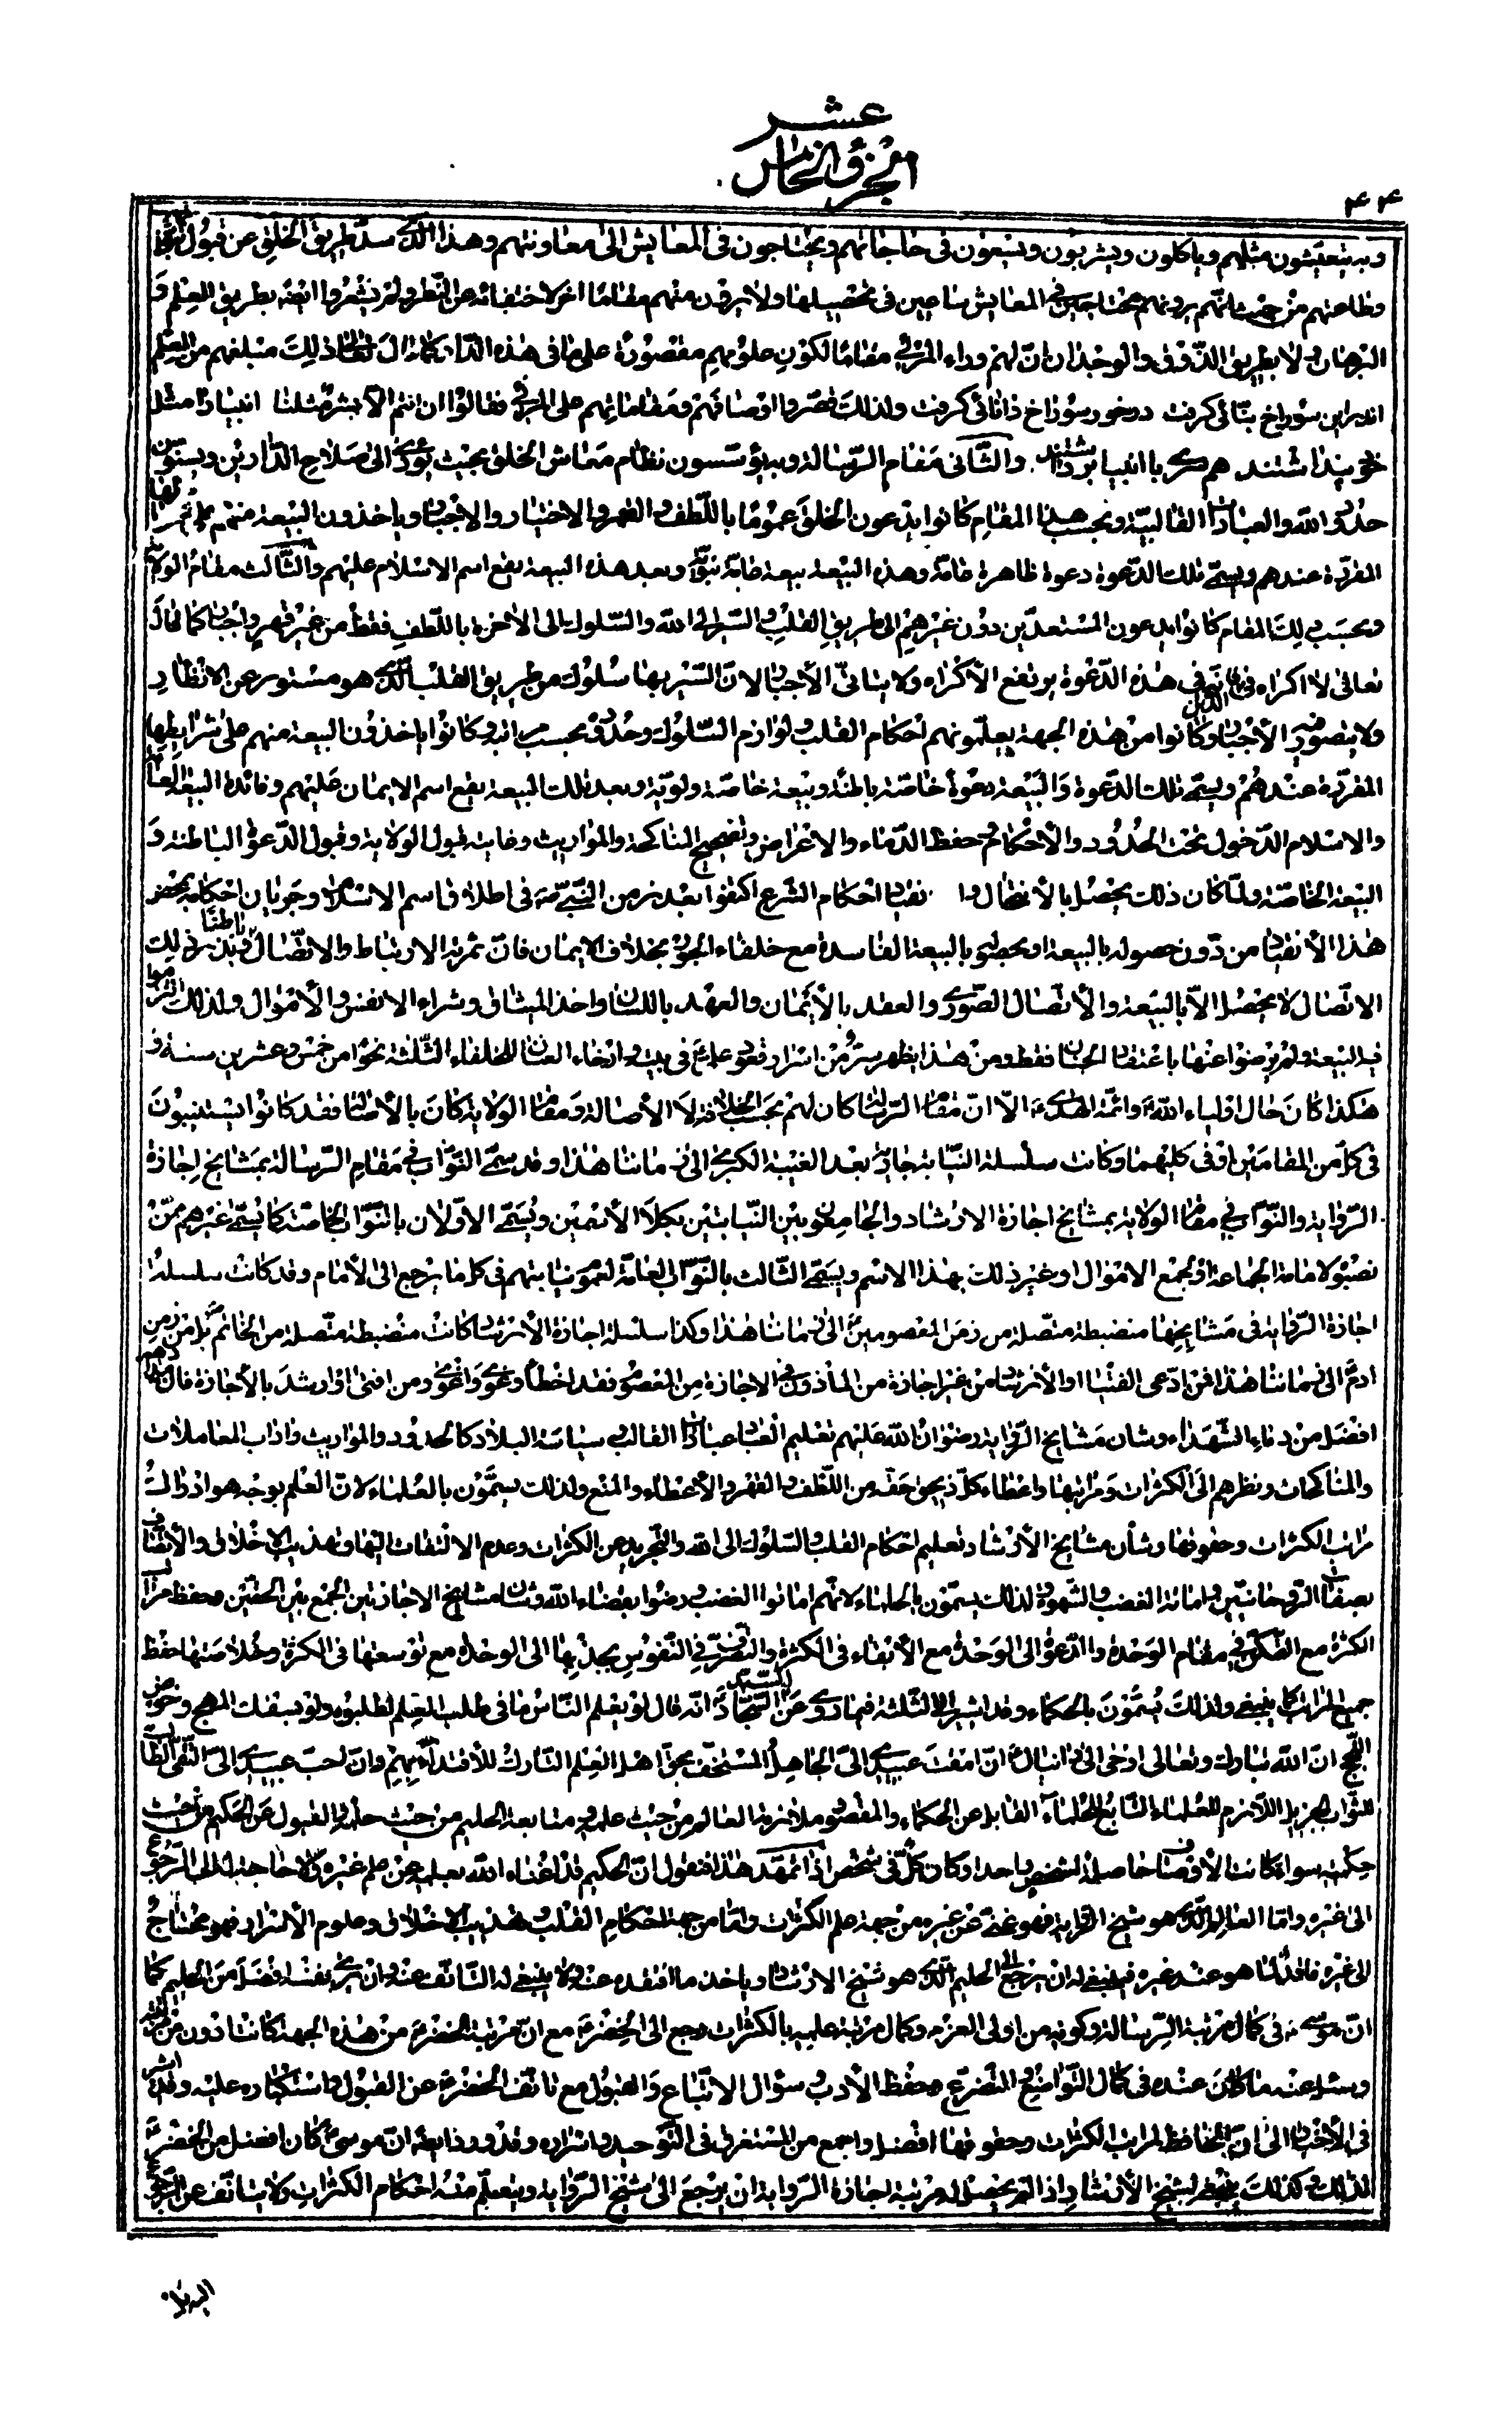 عشر
الجزؤ الخامس
۴۴
وبه يتعيّشون مثلهم وياكلون ويشربون ويسعون فى حاجاتهم ويحتاجون فى المعايش الى معاونتهم وهذا الّذى سدّ طريق الخلق عن قبول
وطاعتهم من حيث انّهم يرونهم محتاجين فى المعايش ساعين فى تحصيلها ولا يرون منهم مقامًا اخر لاختفائه عن النّظر ولم يشعروا ايضًا بطريق العلم و
البرهان ولا بطريق الذّوق والوجدان انّ لهم وراء المرئى مقامًا لكون علومهم مقصورة على ما فى هذه الدّار كما قال تعالى ذلك مبلغهم من العلم
اندراين سوراخ بنّائى كرفت درخور سوراخ دانائى كرفت ولذلك قصروا اوصافهم ومقاماتهم على المرئى فقالوا ان انتم الّا بشر مثلنا انبيا را مثل
خود پنداشتند همسرى با انبيا برداشتند والثّانى مقام الرّسالة وبه يؤسّسون نظام معاش الخلق بحيث يؤدّى الى صلاح الدّارين ويسنّون
حدود الله والعبادات القالبيّة وبحسب هذا المقام كانوا يدعون الخلق عمومًا باللّطف والقهر والاختيار والاجبار وياخذون البيعة منهم
المقرّرة عندهم ويسمّى تلك الدّعوة دعوة ظاهرة عامّة وهذه البيعة بيعة عامّة نبويّة وبعد هذه البيعة يقع اسم الاسلام عليهم والثّالث مقام الولاية
وبحسب ذلك المقام كانوا يدعون المستعدّين دون غيرهم الى طريق القلب والسّير الى الله والسّلوك الى الاخرة باللّطف فقط من غير قهر واجبار كما قال
تعالى لا اكراه فى الدّين فى هذه الدّعوة يرتفع الاكراه ولا يتأتّى الاجبار لانّ السّير بها سلوك من طريق القلب الّذى هو مستور عن الانظار
ولا يتصوّر فيه الاجبار وكانوا من هذه الجهة يعلّمونهم احكام القلب ولوازم السّلوك وحدوده بحسب مراتبه وكانوا ياخذون البيعة منهم على شرايطها
المقرّرة عندهم ويسمّى تلك الدّعوة والبيعة دعوة خاصّة باطنة وبيعة خاصّة ولويّة وبعد تلك البيعة يقع اسم الايمان عليهم وفائدة البيعة العامّة
والاسلام الدّخول تحت الحدود والاحكام وحفظ الدّماء والاعراض وتصحيح المناكحة والمواريث وغايته قبول الولاية وقبول الدّعوة الباطنة و
البيعة الخاصّة ولمّا كان ذلك يحصل بالانتحال و انقياد احكام الشّرع اكتفوا بعد زمن النّبىّ ص فى اطلاق اسم الاسلام وجريان احكامه بمحض
هذا الانقياد من دون حصوله بالبيعة او بحصوله بالبيعة الفاسدة مع خلفاء الجور بخلاف الايمان فانّ ثمرته الارتباط والاتّصال باطنًا وبدون ذلك
الاتّصال لا يحصل الّا بالبيعة والاتّصال الصّورى والعقد بالايمان والعهد باللسان واخذ الميثاق وشراء الانفس والاموال ولذلك
فيه البيعة ولم يرضوا عنها باعتقاد الجنان فقط ومن هذا يظهر سرّ من اسرار قعود علىّ ع فى بيته وارخاء العنان للخلفاء الثّلثة نحوًا من خمس وعشرين سنة و
هكذا كان حال اولياء الله وائمّة الهدى ع الّا انّ مقام الرّسالة كان لهم بحسب الخلافة لا الاصالة ومقام الولاية كان بالاصالة فقد كانوا يستنيبون
فى كلّ من المقامين او فى كليهما وكانت سلسلة النّيابة جارية بعد الغيبة الكبرى الى زماننا هذا وقد سمّى النّوّاب فى مقام الرّسالة بمشايخ اجازة
الرّواية والنّوّاب فى مقام الولاية بمشايخ اجازة الارشاد والجامعون بين النّيابتين بكلا الاسمين ويسمّى الاوّلان بالنّوّاب الخاصّة كما يسمّى غيرهم ممّن
نصبوه لامامة الجماعة او لجمع الاموال او غير ذلك بهذا الاسم ويسمّى الثّالث بالنّوّاب العامّة لعموم نيابتهم فى كل ما يرجع الى الامام وقد كانت سلسلة
اجازة الرّواية فى مشايخها منضبطة متّصلة من زمن المعصومين ع الى زماننا هذا وكذا سلسلة اجازة الارشاد كانت منضبطة متّصلة من الخاتم ص بل من زمن
ادم ع الى زماننا هذا فمن ادّعى الفتيا او الارشاد من غير اجازة من المأذون فى الاجازة من المعصوم فقد اخطأ وغوى واغوى ومن افتى او ارشد بالاجازة فان مدادهم
افضل من دماء الشّهداء وشان مشايخ الرّواية رضوان الله عليهم تعليم العباد عبادات القالب وسياسة البلاد كالحدود والمواريث واداب المعاملات
والمناكحات ونظرهم الى الكثرات ومراتبها واعطاء كلّ ذى حقّ حقّه من اللّطف والقهر والاعطاء والمنع ولذلك يسمّون بالعلماء لانّ العلم بوجه هو ادراك
مراتب الكثرات وحقوقها وشأن مشايخ الارشاد تعليم احكام القلب والسّلوك الى الله والتّجريد عن الكثرات وعدم الالتفات اليها وتهذيب الاخلاق والاتّصاف
بصفات الرّوحانيّين واماتة الغضب والشّهوة ولذلك يسمّون بالحلماء لانّهم اماتوا الغضب ورضوا بقضاء الله وشان مشايخ الاجازتين الجمع بين الحقّين وحفظ مراتب
الكثرة مع التمكّن فى مقام الوحدة والدّعوة الى الوحدة مع الابقاء فى الكثرة والتّصرّف فى النّفوس بجذبها الى الوحدة مع توسعتها فى الكثرة وخلاصتها حفظ
جميع المراتب كما ينبغى ولذلك يسمّون بالحكماء وقد اشير الى الثّلثة فيما روى عن السّيّد السّجّاد ع انّه قال لو يعلم النّاس ما فى طلب العلم لطلبوه ولو بسفك المهج وخوض
اللّجج انّ الله تبارك وتعالى اوحى الى دانيال ع انّ امقت عبيدى الىّ الجاهل المستخفّ بحقّ اهل العلم التّارك للاقتداء بهم وانّ احبّ عبيدى الىّ التّقىّ الطّالب
للثّواب الجزيل اللّازم للعلماء التّابع للحلماء القابل عن الحكماء والمقصود ملازمة العالم من حيث علمه ومتابعة الحليم من حيث حلمه والقبول عن الحكيم من حيث
حكمته سواء كانت الاوصاف حاصلة لشخص واحد او كان كلّ فى شخص اذا تمهّد هذا فنقول انّ الحكيم قد اغناه الله بعلمه عن علم غيره ولا حاجة له الى الرّجوع
الى غيره وامّا العالم الّذى هو شيخ الرّواية فهو غنىّ عن غيره من جهة علم الكثرات وامّا من جهة احكام القلب وتهذيب الاخلاق وعلوم الاسرار فهو محتاج
الى غيره فاقد لما هو عند غيره فينبغى له ان يرجع الى الحليم الّذى هو شيخ الارشاد وياخذ ما افتقده عنه ولا ينبغى له التّانّف عنه وان يرى نفسه افضل من الحليم كما
انّ موسى ع فى كمال مرتبة الرّسالة وكونه من اولى العزم وكمال مرتبة علمه بالكثرات رجع الى الخضر ع مع انّ مرتبة الخضر ع من هذه الجهة كانت ادون من مرتبته
وسئل عنه ما كان عنده فى كمال التّواضع والتّضرّع وحفظ الادب وسؤال الاتّباع والقبول مع تانّف الخضر ع عن القبول واستكباره عليه وقد اشير
فى الاخبار الى انّ الحافظ لمراتب الكثرات وحقوقها افضل واجمع من المستغرق فى التّوحيد واسراره وقد ورد ايضًا انّ موسى ع كان افضل من الخضر ع
لذلك وكذلك ينبغى لشيخ الارشاد اذا لم يحصل له مرتبة اجازة الرّواية ان يرجع الى شيخ الرّواية ويتعلّم منه احكام الكثرات ولا يتانّف عن الرّجوع
اليه ولا